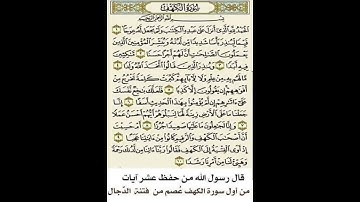 سورة الكهف
بسم الله الرحمن الرحيم
الحمد لله الذي أنزل على عبده الكتب ولم يجعل له عوجا
قيما لينذر بأسا شديدا من لدنه ويبشر المؤمنين الذين
يعملون الصلحت أن لهم أجرا حسنا مكثين
فيه أبدا وينذر الذين قالوا اتخذ الله ولدا
ما لهم به من علم ولا لأبائهم كبرت كلمة تخرج من
أفوههم إن يقولون إلا كذبا فلعلك بخع نفسك
على ءاثرهم إن لم يؤمنوا بهذا الحديث أسفا إنا
جعلنا ما على الأرض زينة لها لنبلوهم أيهم أحسن عملا
وإنا لجعلون ما عليها صعيدا جرزا أم حسبت
أن أصحب الكهف والرقيم كانوا من ءايتنا عجبا
إذ أوى الفتية إلى الكهف فقالوا ربنا ءاتنا من لدنك رحمة
وهيئ لنا من أمرنا رشدا
قال رسول الله من حفظ عشر آيات
من أول سورة الكهف عُصم من فتنة الدّجال